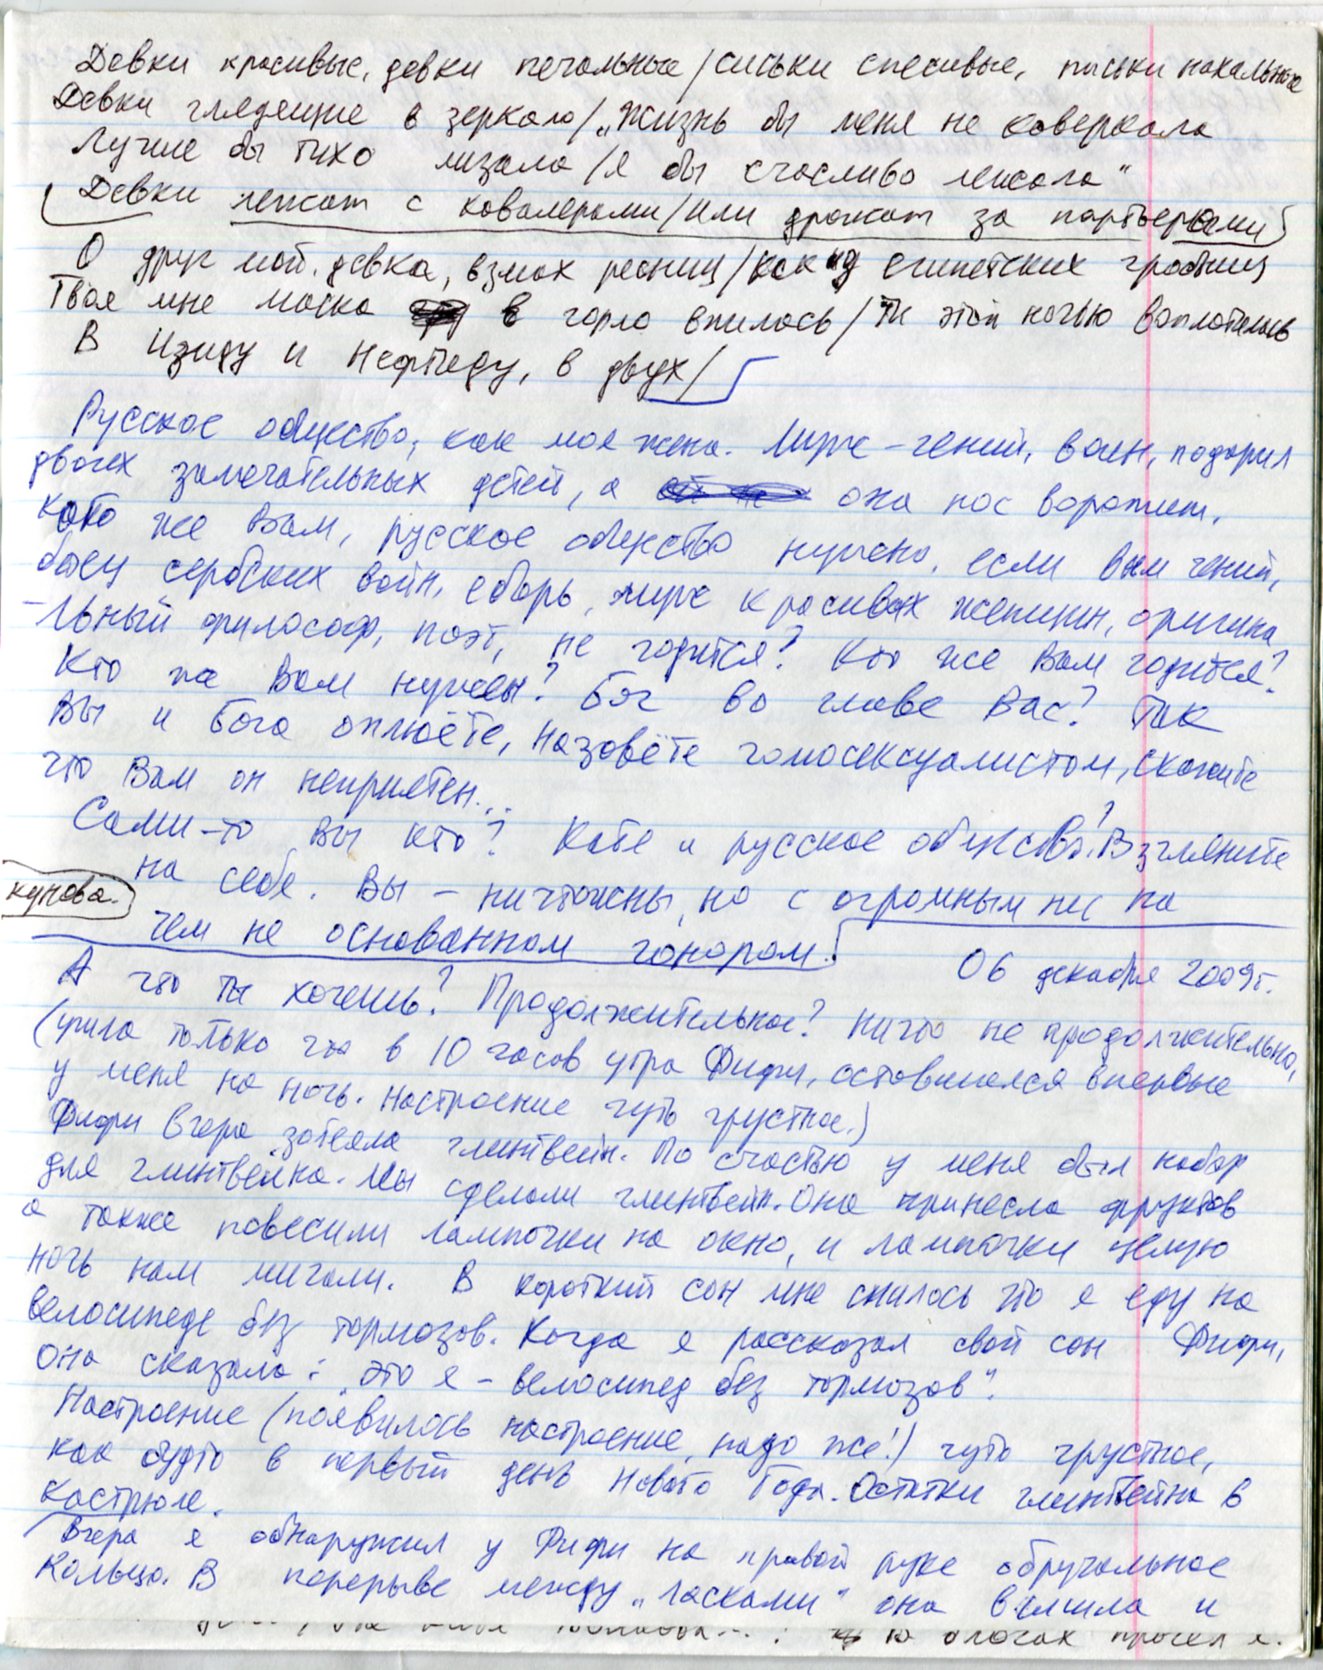 Девки красивые, девки печальные / сиськи спесивые, письки нахальные
Девки глядящие в зеркало / „Жизнь бы меня не коверкала
Лучше бы тихо лизала / я бы счастливо лежала"
Девки лежат с кавалерами / или дрожат за портьерами
О друг мой, девка, взмах ресниц / как из египетских гробниц
Твоя мне маска в горло впилась / ты этой ночью воплотилась
В Изиду и Нефтиду, в двух /
Русское общество, как моя жена. Муж – гений, воин, подарил
двоих замечательных детей, а она нос воротит.
Кого же Вам, русское общество нужно, если Вам гений,
боец сербских войн, ебарь, муж красивых женщин, оригина
-льный философ, поэт, не годится? Кто же Вам годится?
Кто же Вам нужен? Бог во главе Вас? Так
Вы и Бога оплюёте, назовёте гомосексуалистом, скажете
что Вам он неприятен...
Сами-то Вы кто? Катя и русское общество? Взгляните
на себя. Вы – ничтожны, но с огромным ни на
кунова.
чем не основанном гонором.
06 декабря 2009г.
А что ты хочешь? Продолжительное? Ничто не продолжительно,
(ушла только что в 10 часов утра Фифи, оставшаяся впервые
у меня на ночь. Настроение чуть грустное.)
Фифи вчера затеяла глинтвейн. По счастью у меня был набор
для глинтвейна. Мы сделали глинтвейн. Она принесла фруктов
а также повесили лампочки на окно, и лампочки целую
ночь нам мигали. В короткий сон мне снилось что я еду на
велосипеде без тормозов. Когда я рассказал свой сон Фифи,
она сказала: „это я – велосипед без тормозов".
Настроение (появилось настроение, надо же!) чуть грустное,
как будто в первый день Нового Года. Остатки глинтвейна в
кастрюле.
Вчера я обнаружил у Фифи на правой руке обручальное
кольцо. В перерыве между „ласками" она и